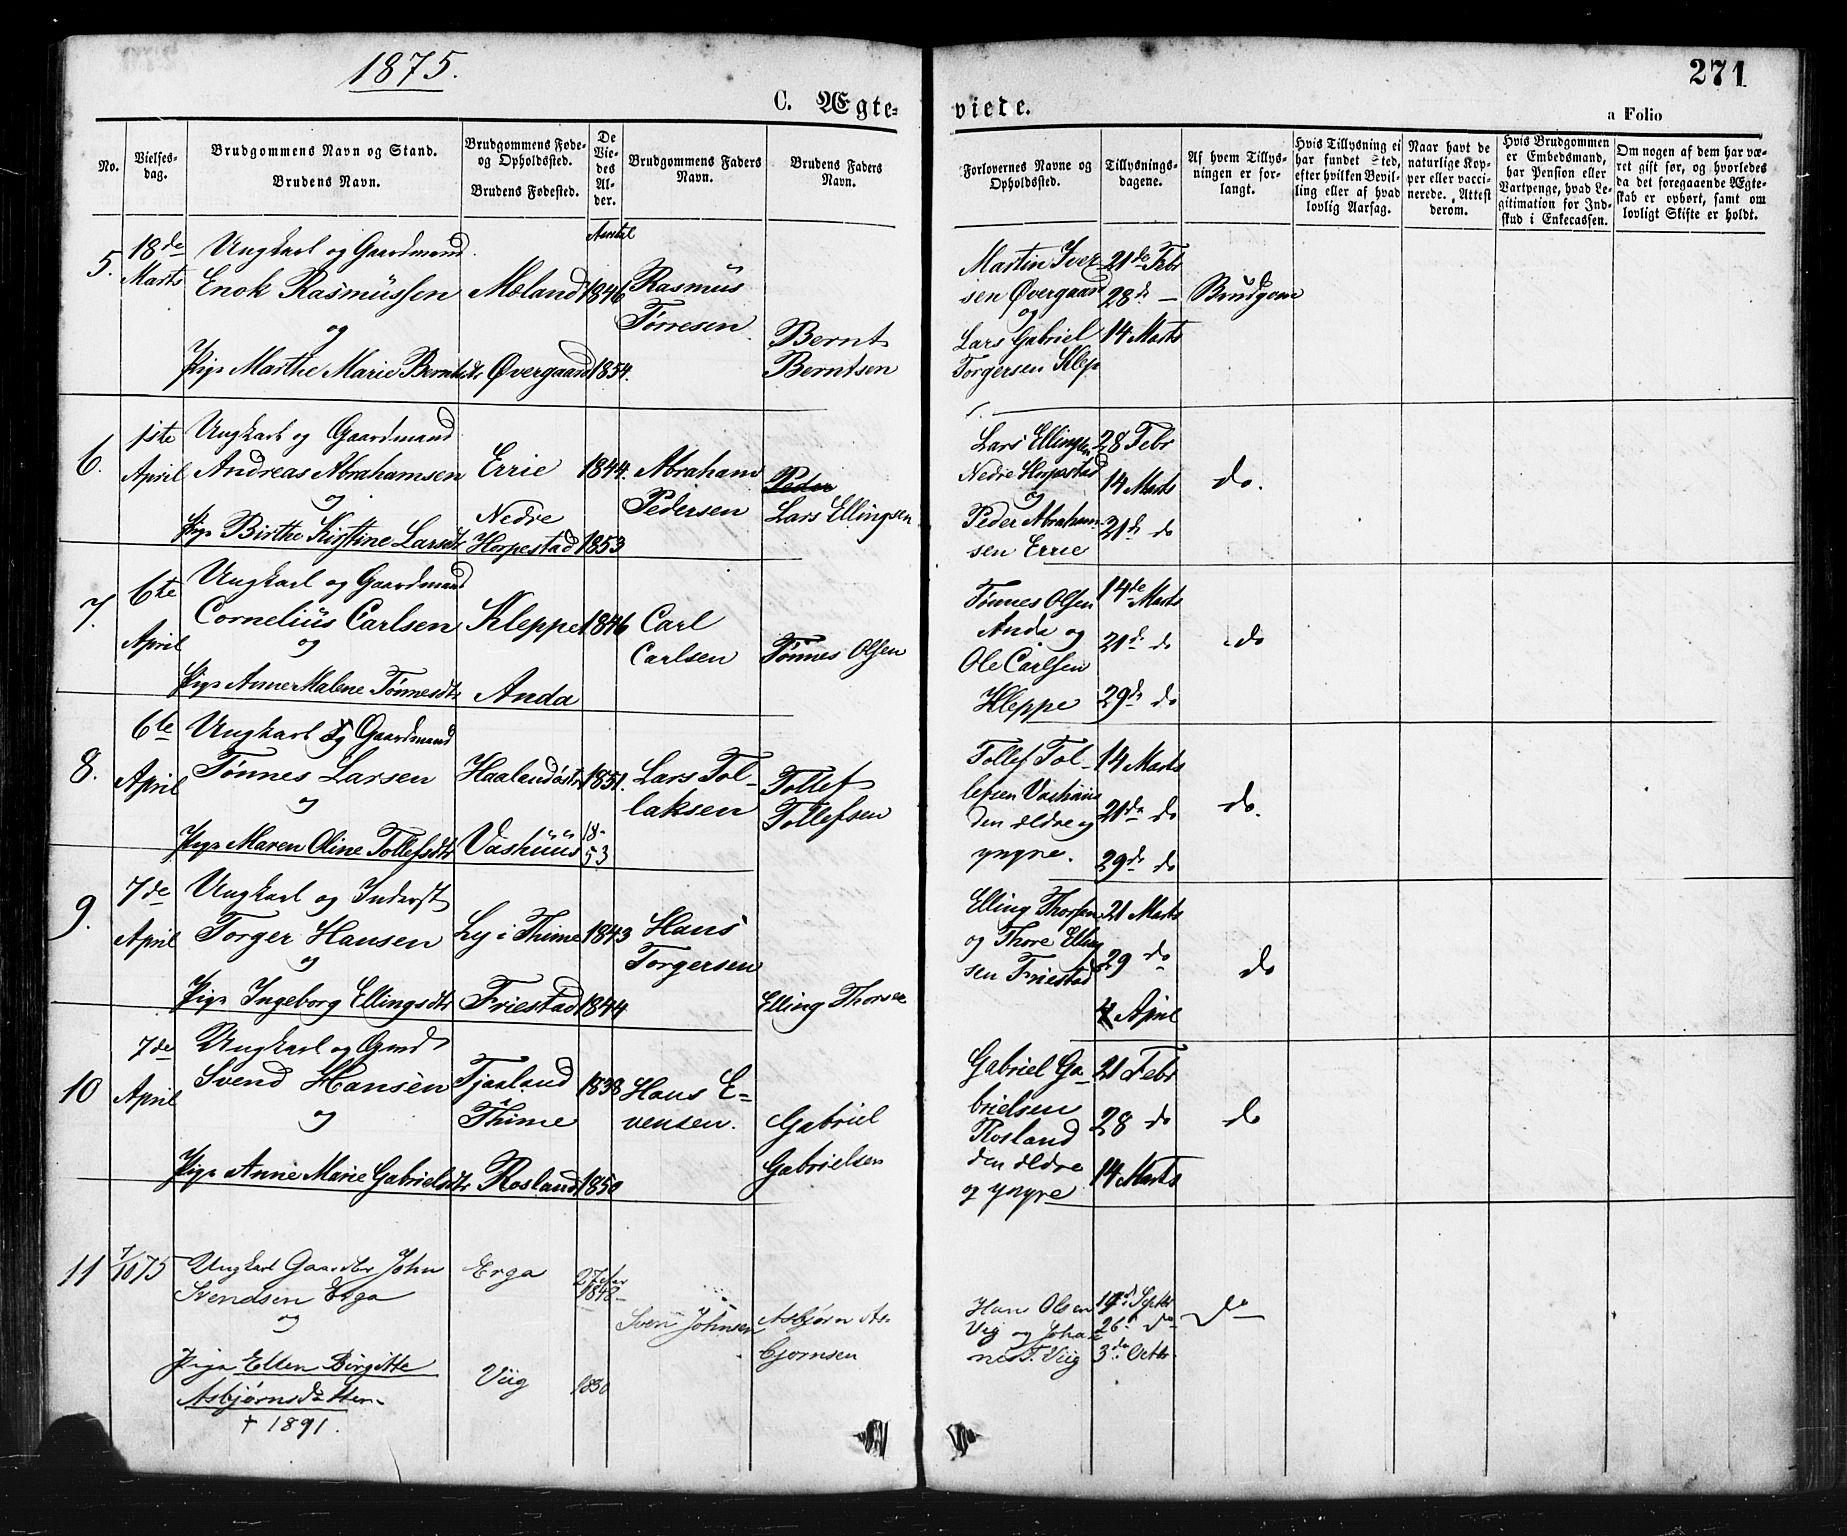 1875.
271
C. Ægte-
viede.
a Folio
No.
Vielses-
dag.
Brudgommens Navn og Stand.
Brudens Navn.
Brudgommens Føde-
og Opholdssted.
Brudens Fødested.
De
Vie-
des
Al-
der.
Brudgommens Faders
Navn.
Brudens Faders
Navn.
Forlovernes Navne og
Opholdssted.
Tillysnings-
dagene.
Af hvem Tillys-
ningen er for-
langt.
Hvis Tillysning ei
har fundet Sted,
efter hvilken Bevil-
ling eller af hvad
lovlig Aarsag.
Naar havt de
naturlige Kop-
per eller vacci-
nerede. Attest
derom.
Hvis Brudgommen
er Embedsmand,
har Pension eller
Vartpenge, hvad Le-
gitimation for Ind-
skud i Enkecassen.
Om nogen af dem har væ-
ret gift før, og hvorledes
da det foregaaende Ægte-
skab er ophørt, samt om
lovligt Skifte er holdt.
5.
18de
Marts
Ungkarl og Gaardmand
Enok Rasmussen
og
Pige Marthe Marie Berntsdtr
Mæland
Øvergaard
1846
1854.
Rasmus
Tørresen
Bernt
Berntsen
Martin Iver-
sen Øvergaard
og
Lars Gabriel
Torgersen Klep
21de Febr
28de —
14 Marts
Brudgom
6.
1ste
April
Ungkarl og Gaardmand
Andreas Abrahamsen
og
Pige Birthe Kirstine Larsdtr
Errie
Nedre
Horpestad
1844.
1853
Abraham
Pedersen
Peder
Lars Ellingsen
Lars Ellingsen
Nedre Horpestad
og
Peder Abraham-
sen Errie
28 Febr
14 Marts
21de do
do.
7.
6te
April
Ungkarl og Gaardmand
Cornelius Carlsen
og
Pige Anne Malene Tønnesdtr
Kleppe
Anda
1846
Carl
Carlsen
Tønnes Olsen
Tønnes Olsen
Anda og
Ole Carlsen
Kleppe
14de Marts
21de do
29de do
do
8.
6te
April
Ungkarl og Gaardmand
Tønnes Larsen
og
Pige Maren Oline Tollefsdtr
Haaland østre
Vashuus
1851.
18-
53
Lars Tol-
laksen
Tollef
Tollefsen
Tollef Tol-
lefsen Vashuus
den ældre og
yngre.
14 Marts
21de do
29de do
do.
9.
7de
April
Ungkarl og Inderst
Torger Hansen
og
Pige Ingeborg Ellingsdtr
Ly i Thime
Friestad
1843
1844
Hans
Torgersen
Elling Thorsen
Elling Thorsen
og Thore Elling
sen Friestad
21 Marts
29 do
April
do
10
7de
April
Ungkarl og Gmd
Svend Hansen
og
Pige Anne Marie Gabrielsdtr
Tjaaland
i
Thime
Rosland
1838
1850
Hans E-
vensen.
Gabriel
Gabrielsen
Gabriel Ga-
brielsen
Rosland
den ældre
og yngre
21 Febr
28 do
14 Marts
do
11
7/10 75
Ungkarl Gaardbr John
Svendsen Erga
og
Pige Ellen Birgitte
Asbjørnsdatter
† 1891.
Erga
Viig
27 Aar
1848
1850
Sven Johnsen
Asbjørn As-
bjørnsen
Hans Olsen
Vig og Johan-
nes T. Viig
19de Septbr
26de do
3de Octbr
do